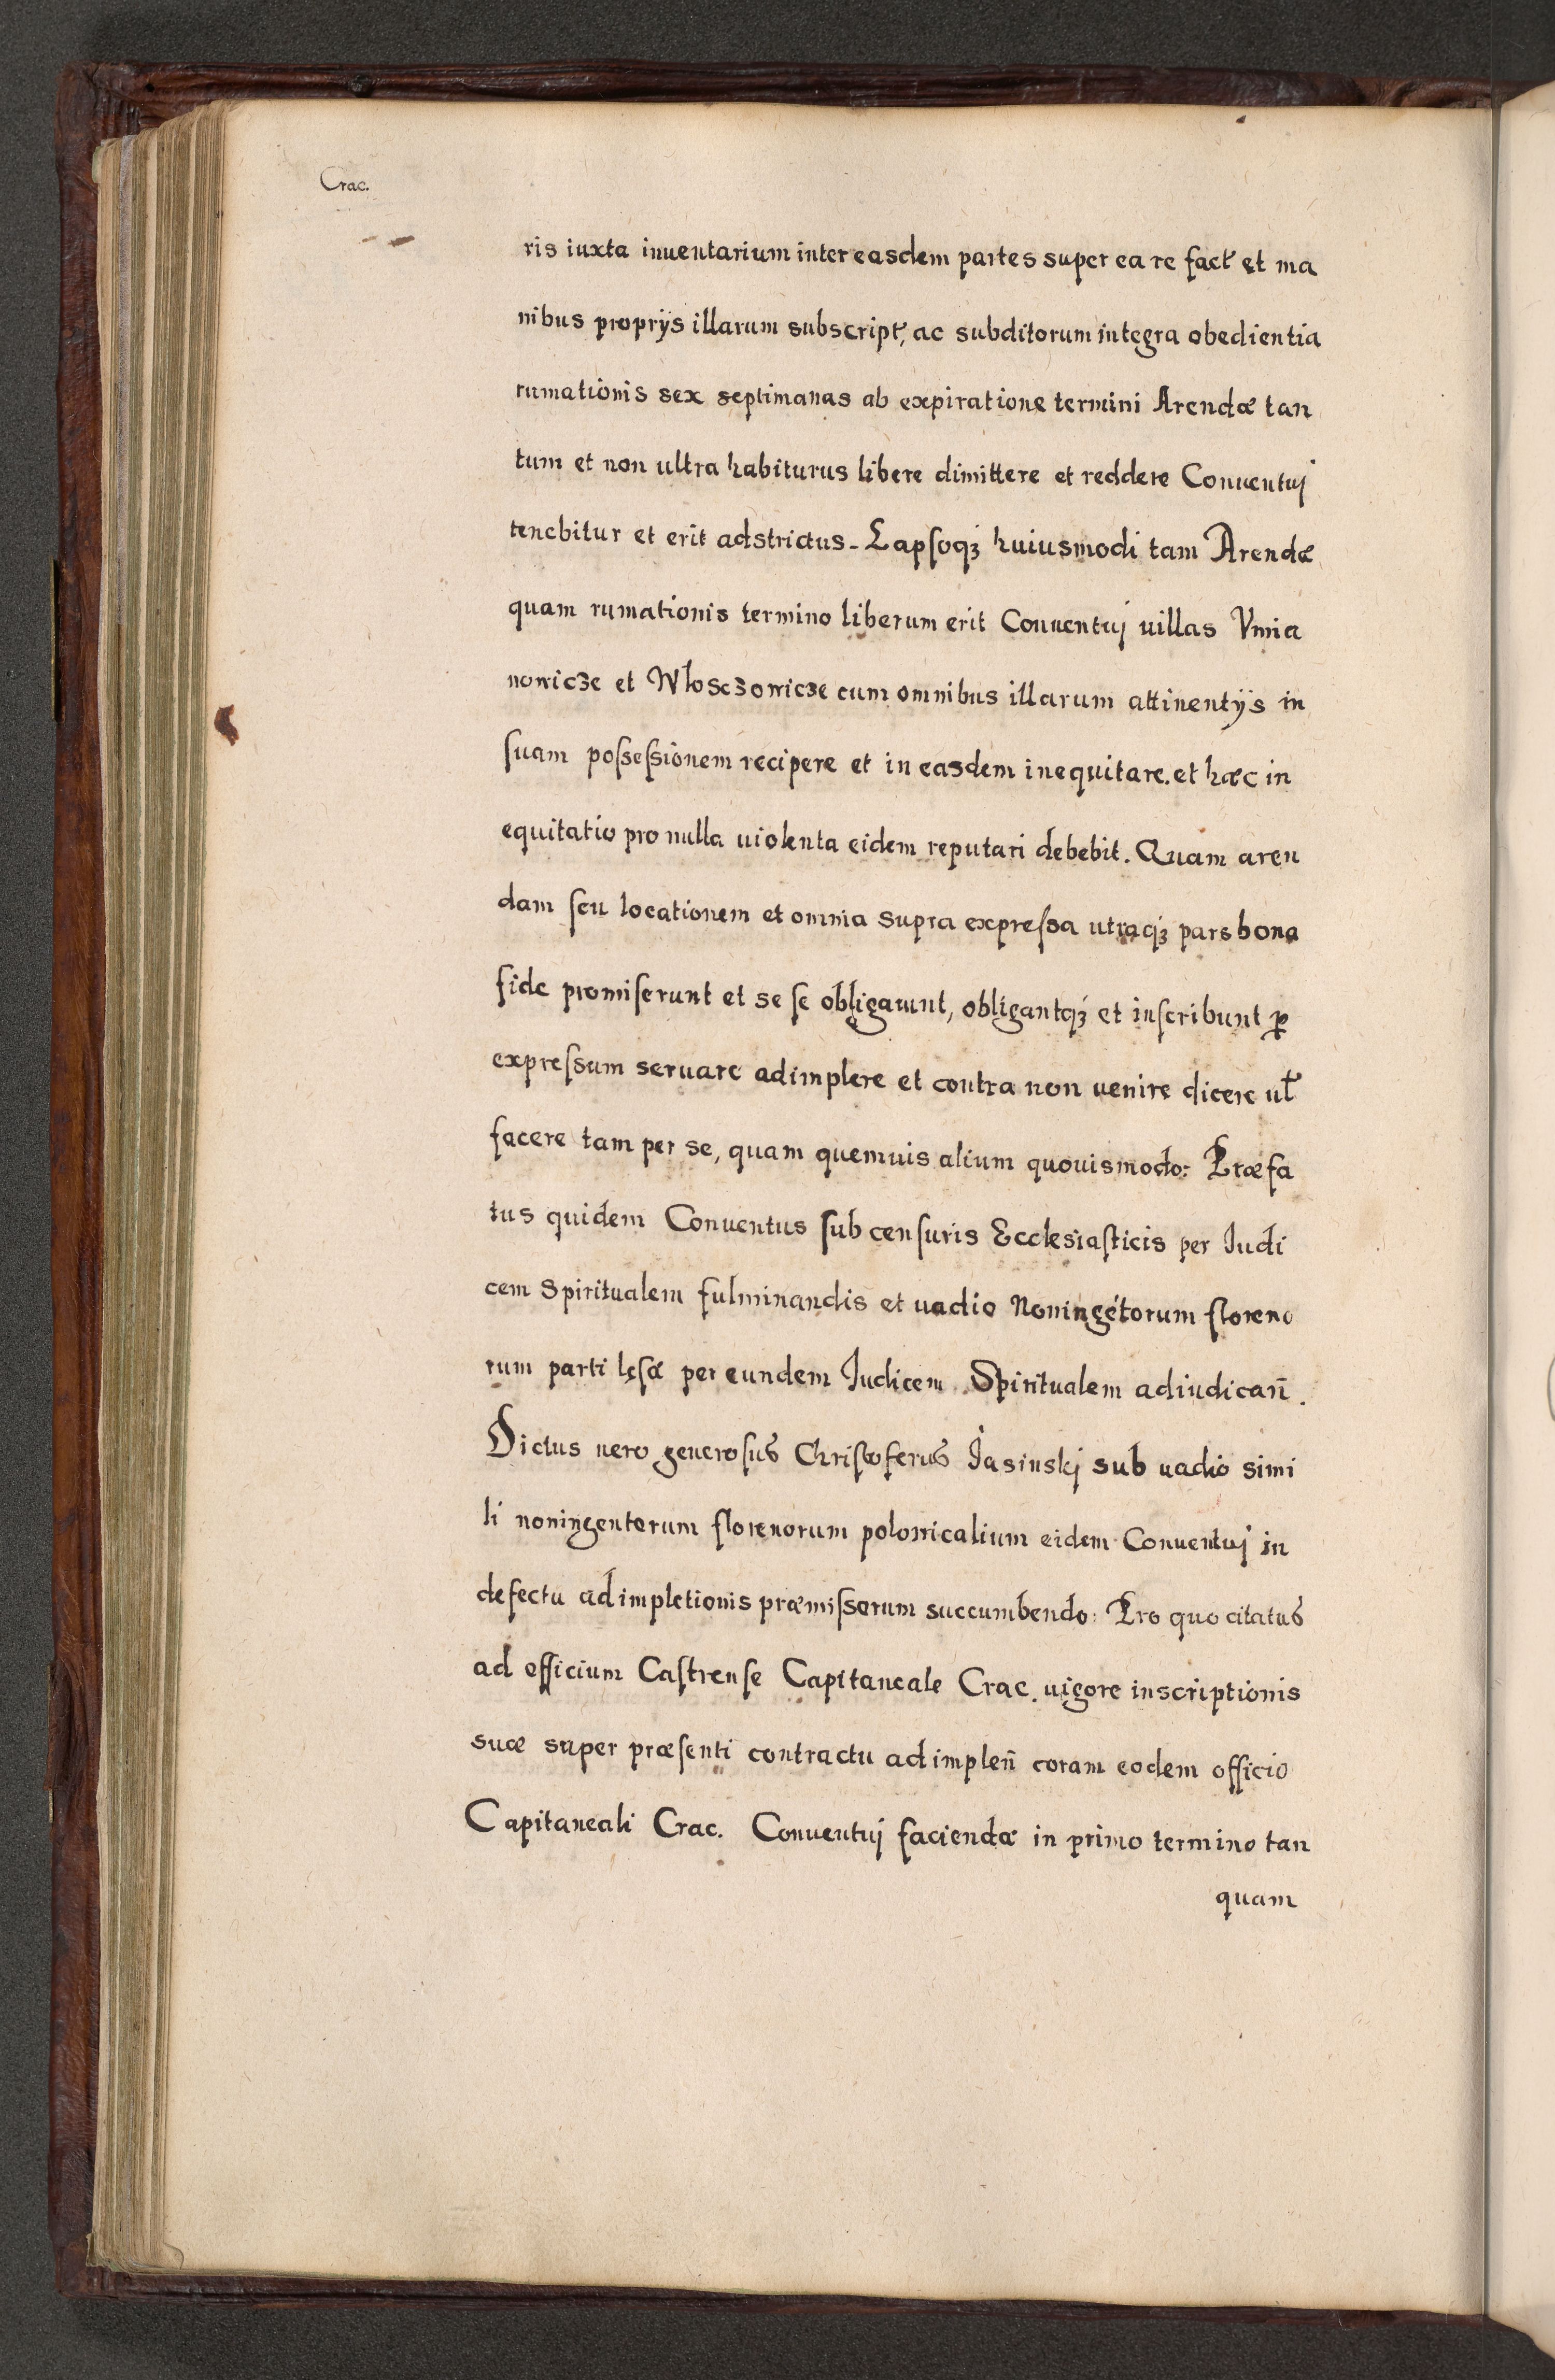 Crac.
ris iuxta inuentarium inter easdem partes super ea re fact̃ et ma
nibus proprijs illarum subscript̃, ac subditorum integra obedientia
rumationis sex septimanas ab expiratione termini Arendæ tan
tum et non ultra habiturus libere dimittere et reddere Conuentuj
tenebitur et erit adstrictus - Lapſoqꝫ huiusmodi tam Arendæ
quam rumationis termino liberum erit Conuentuj uillas Vmia
nowicze et Włosczowicze cum omnibus illarum attinentijs in
ſuam poſseſsionem recipere et in easdem inequitare. et hæc in
equitatio pro nulla uiolenta eidem reputari debebit. Quam aren
dam ſeu locationem et omnia supra expreſsa utraqꝫ pars bona
fide promiſerunt et se ſe obligarunt, obligantqꝫ et inſcribunt ꝑ
expreſsum seruare adimplere et contra non uenire dicere ut̃
facere tam per se, quam quemuis alium quouismodo: Præfa
tus quidem Conuentus ſub cenſuris Eccleſiaſticis per Iudi
cem Spiritualem fulminandis et uadio Noningẽtorum floreno
rum parti lęſæ per eundem Iudicem Spiritualem adiudicañ.
Dictus uero generoſus Chriſtoferus Jasinskj sub uadio simi
li noningentorum florenorum polonicalium eidem Conuentuj in
defectu adimpletionis præmiſsorum succumbendo: Pro quo citatus
ad officium Caſtrenſe Capitaneale Crac. uigore inscriptionis
suæ super præſenti contractu adimpleñ coram eodem officio
Capitaneali Crac. Conuentuj faciendæ in primo termino tan
quam